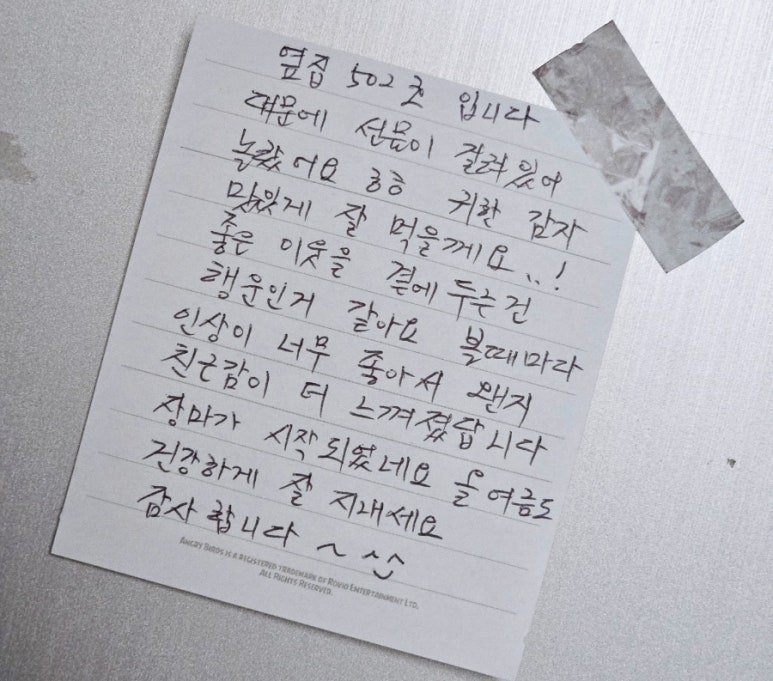 옆집 502호 입니다
대문에 선물이 걸려있어
놀랐어요 ㅎㅎ 귀한 감자
맛있게 잘 먹을께요..!
좋은 이웃을 곁에 두는건
행운인거 같아요 볼때마다
인상이 너무 좋아서 왠지
친근감이 더 느껴졌답니다
장마가 시작되었네요 올여름도
건강하게 잘 지내세요
감사합니다 ~ ^^
ANGRY BIRDS IS A REGISTERED TRADEMARK OF ROVIO ENTERTAINMENT LTD.
ALL RIGHTS RESERVED.